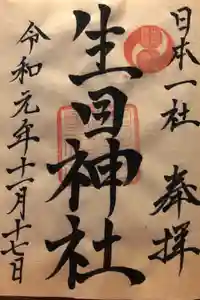 日本一社
奉拝
生目神社
令和元年十一月十七日